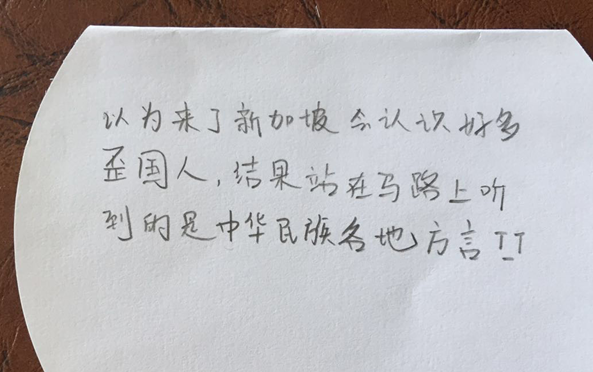 以为来了新加坡会认识好多
歪国人，结果站在马路上听
到的是中华民族各地方言 T_T